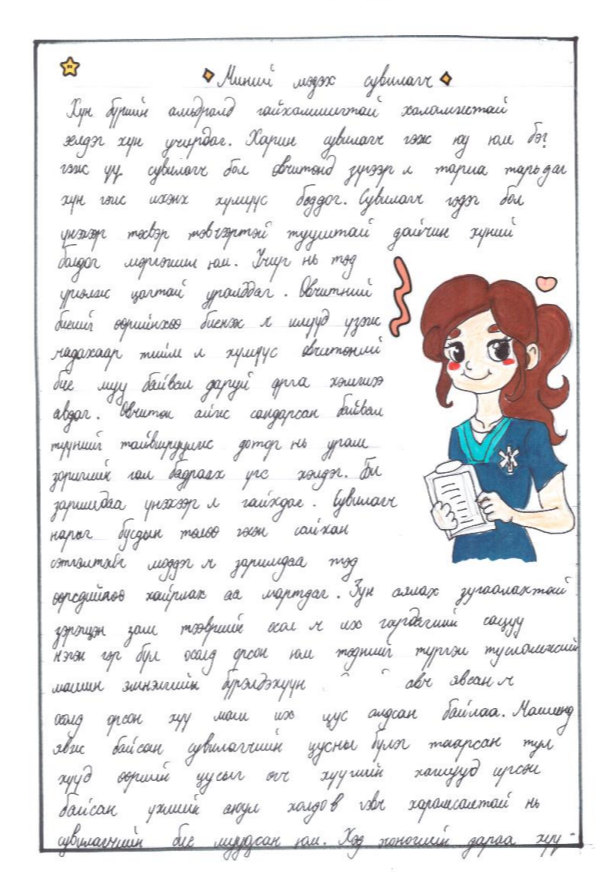 Миний мэдэх сувилагч
Хүн бүрийн амьдралд гайхамшигтай халамжтай
хэлдэг хүн учирдаг. Харин сувилагч гэж юу юм бэ?
гэж үү сувилагч бол өвчтөнд зүгээр л тариа тарьдаг
хүн гэж ихэнх хүмүүс боддог. Сувилагч гэдэг бол
үнэхээр тэвчээртэй тууштай дайчин хүний
болдог мэргэжил юм. Учир нь тэд
үргэлж цагтай уралддаг. Өвчтний
биеийг өөрийнхөө биенээс л илүүд үзэж
чадахаар тийм л хүмүүс өвчтөний
бие муу байвал даруй арга хэмжээ
авдаг. Өвчтөн айж сандарсан байвал
түүнийг тайвшируулж дотор нь урам
зоригийн гал бадраах үгс хэлдэг. Би
заримдаа үнэхээр л гайхдаг. Сувилагч
нарыг бусдын төлөө гэсэн сайхан
сэтгэлтэйг мэддэг ч заримдаа тэд
өөрсдийгөө хайрлах аа мартдаг. Зун аялах зугаалахтай
зэрэгцэн зам тээврийн осол ч их гардагийн сацуу
нэгэн гэр бүл осолд орсон юм тэднийг түргэн тусламжийн
машин эмнэлгийн бүрэлдэхүүн авч явсан ч
осолд орсон хүү маш их цус алдсан байлаа. Машинд
явж байсан сувилагчийн цусны бүлэг таарсан тул
хүүд өөрийн цусыг өгч хүүгийн хацууд ирсэн
байсан үхлийн аюул холдов гэвч харамсалтай нь
сувилагчийн бие муудсан юм. Хэд хоногийн дараа хүү